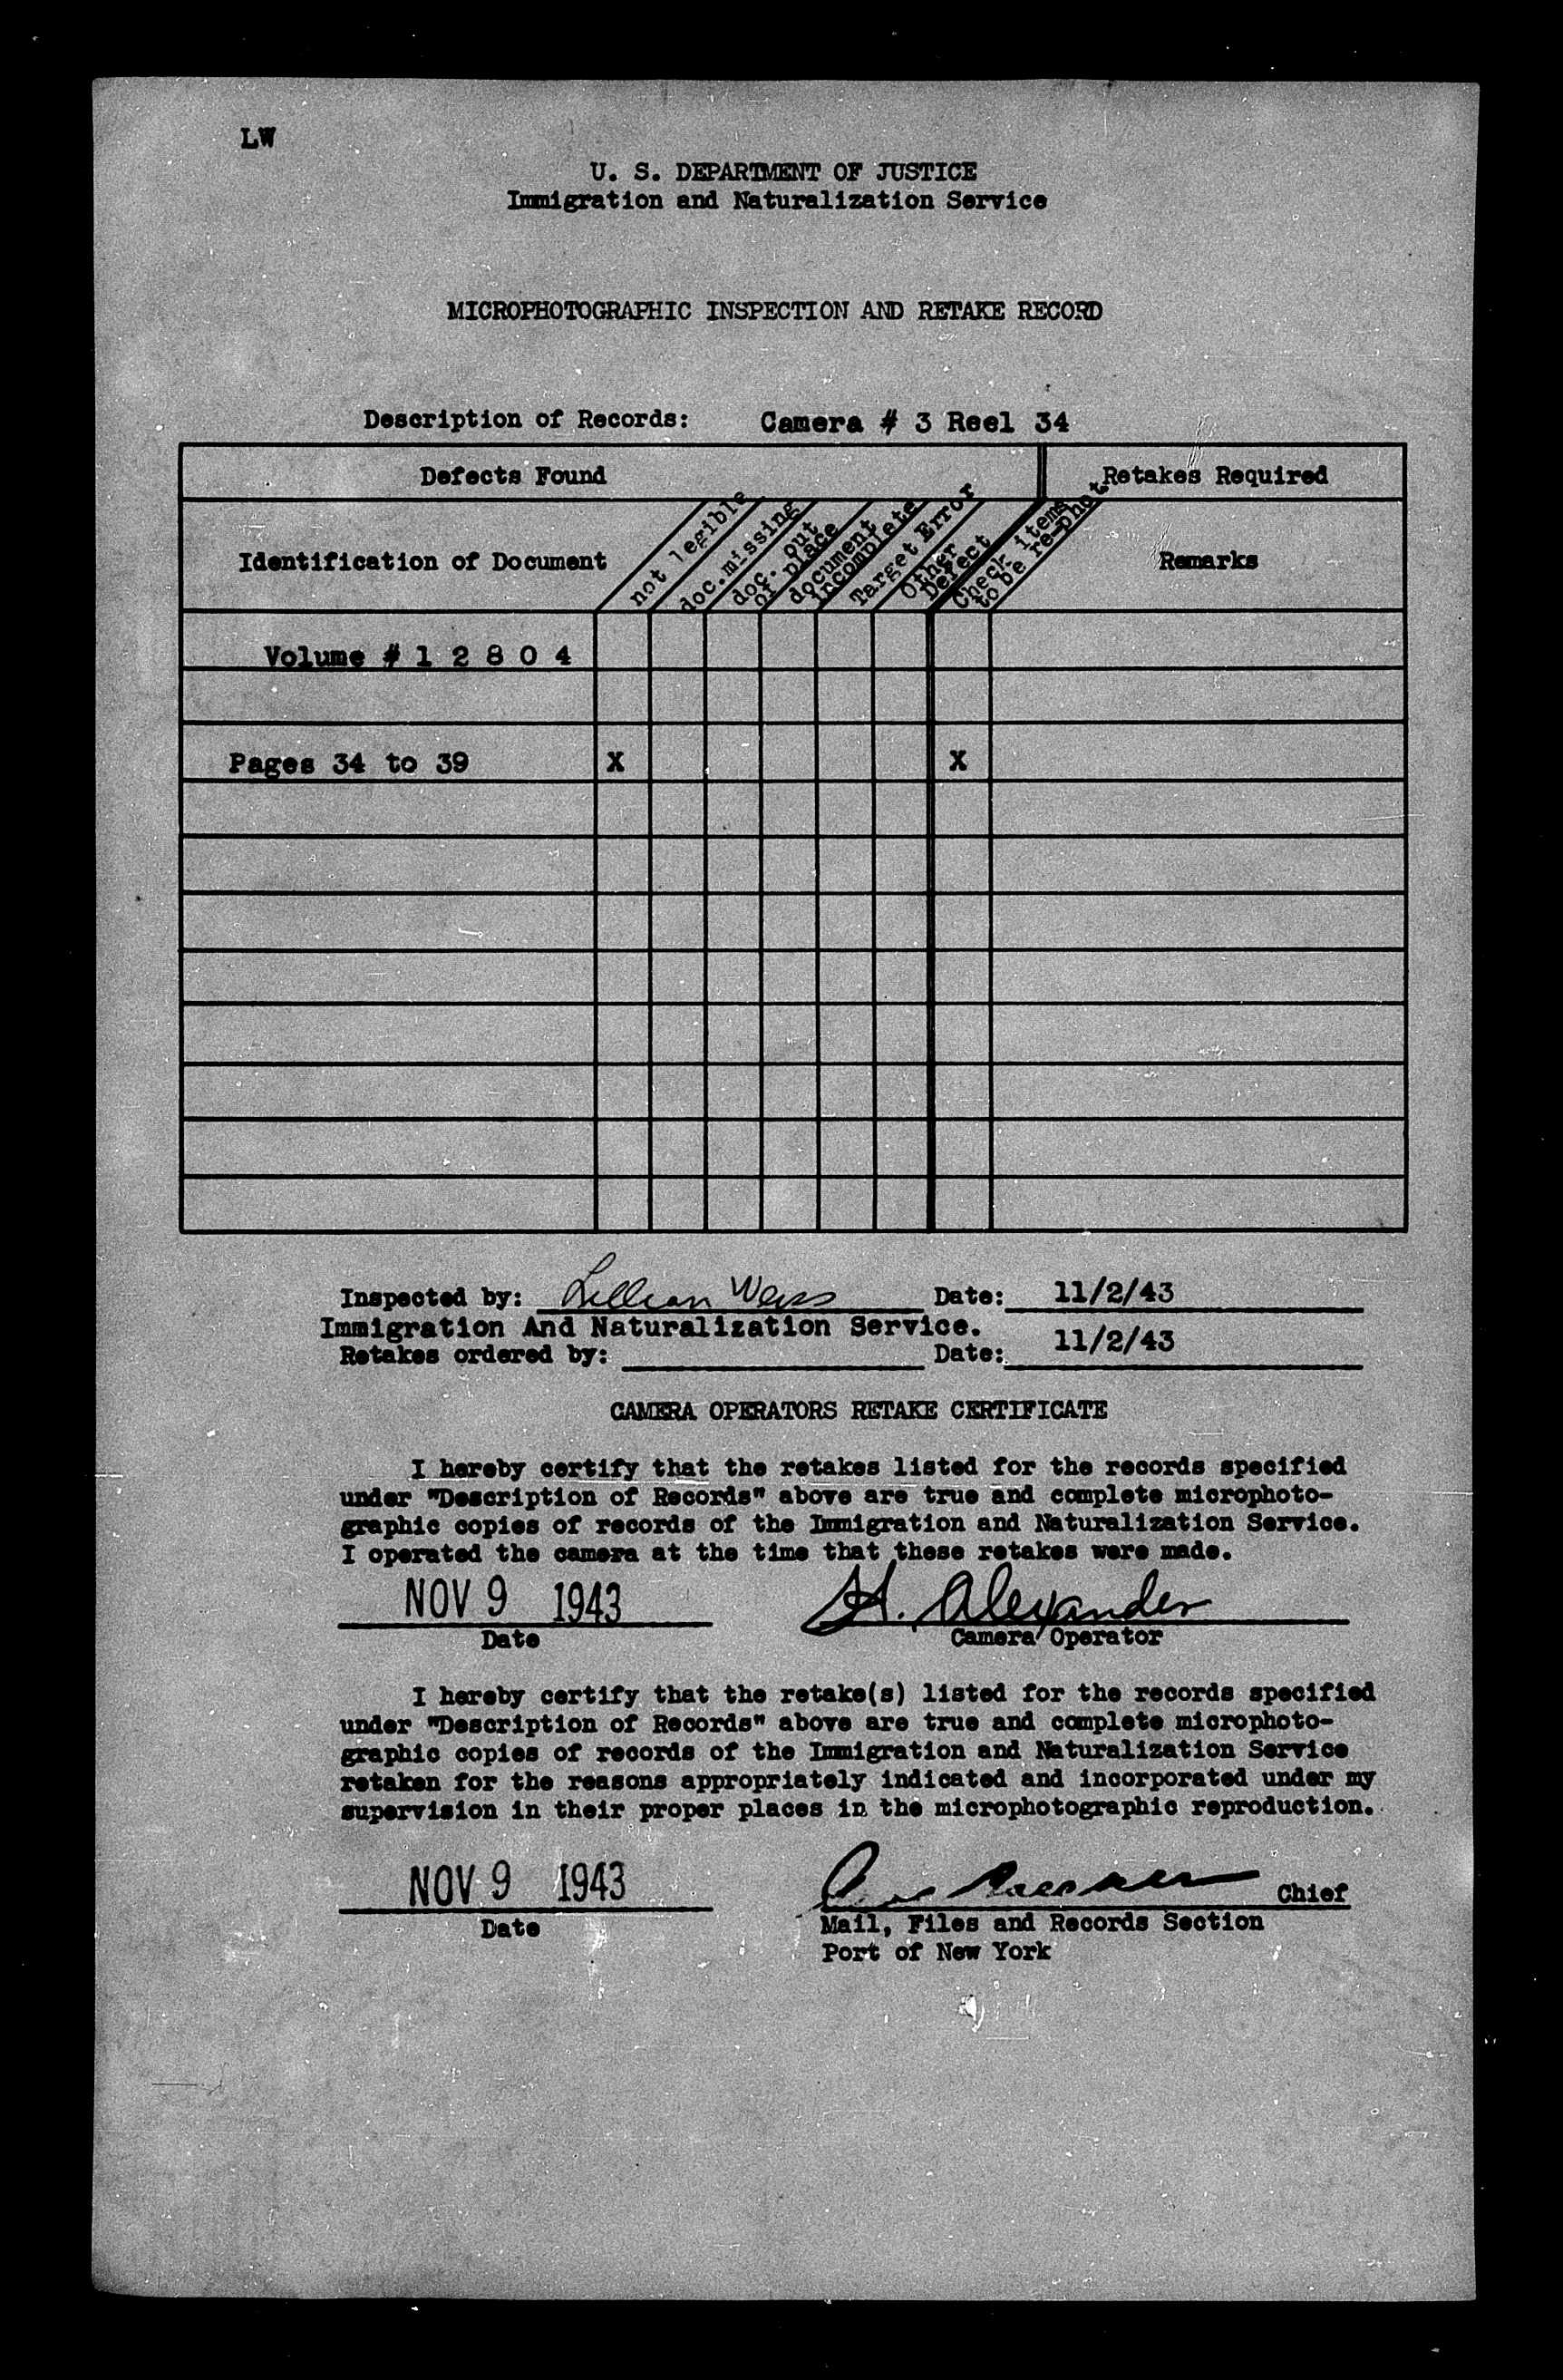 LW
U. S. DEPARTMENT OF JUSTICE
Immigration and Naturalization Service
MICROPHOTOGRAPHIC INSPECTION AND RETAKE RECORD
Description of Records: Camera # 3 Reel 34
Defects Found
Retakes Required
Identification of Document
not legible
doc.missing
doc. out
of place
document
incomplete
Target Error
Other
Defect
Check items
to be re-phot.
Remarks
Volume # 1 2 8 0 4
Pages 34 to 39 X X
Inspected by: Lillian Weiss Date: 11/2/43
Immigration And Naturalization Service.
Retakes ordered by: Date: 11/2/43
CAMERA OPERATORS RETAKE CERTIFICATE
I hereby certify that the retakes listed for the records specified
under "Description of Records" above are true and complete microphoto-
graphic copies of records of the Immigration and Naturalization Service.
I operated the camera at the time that these retakes were made.
NOV 9 1943 H. Alexander
Date Camera Operator
I hereby certify that the retake(s) listed for the records specified
under "Description of Records" above are true and complete microphoto-
graphic copies of records of the Immigration and Naturalization Service
retaken for the reasons appropriately indicated and incorporated under my
supervision in their proper places in the microphotographic reproduction.
NOV 9 1943 Chief
Date Mail, Files and Records Section
Port of New York